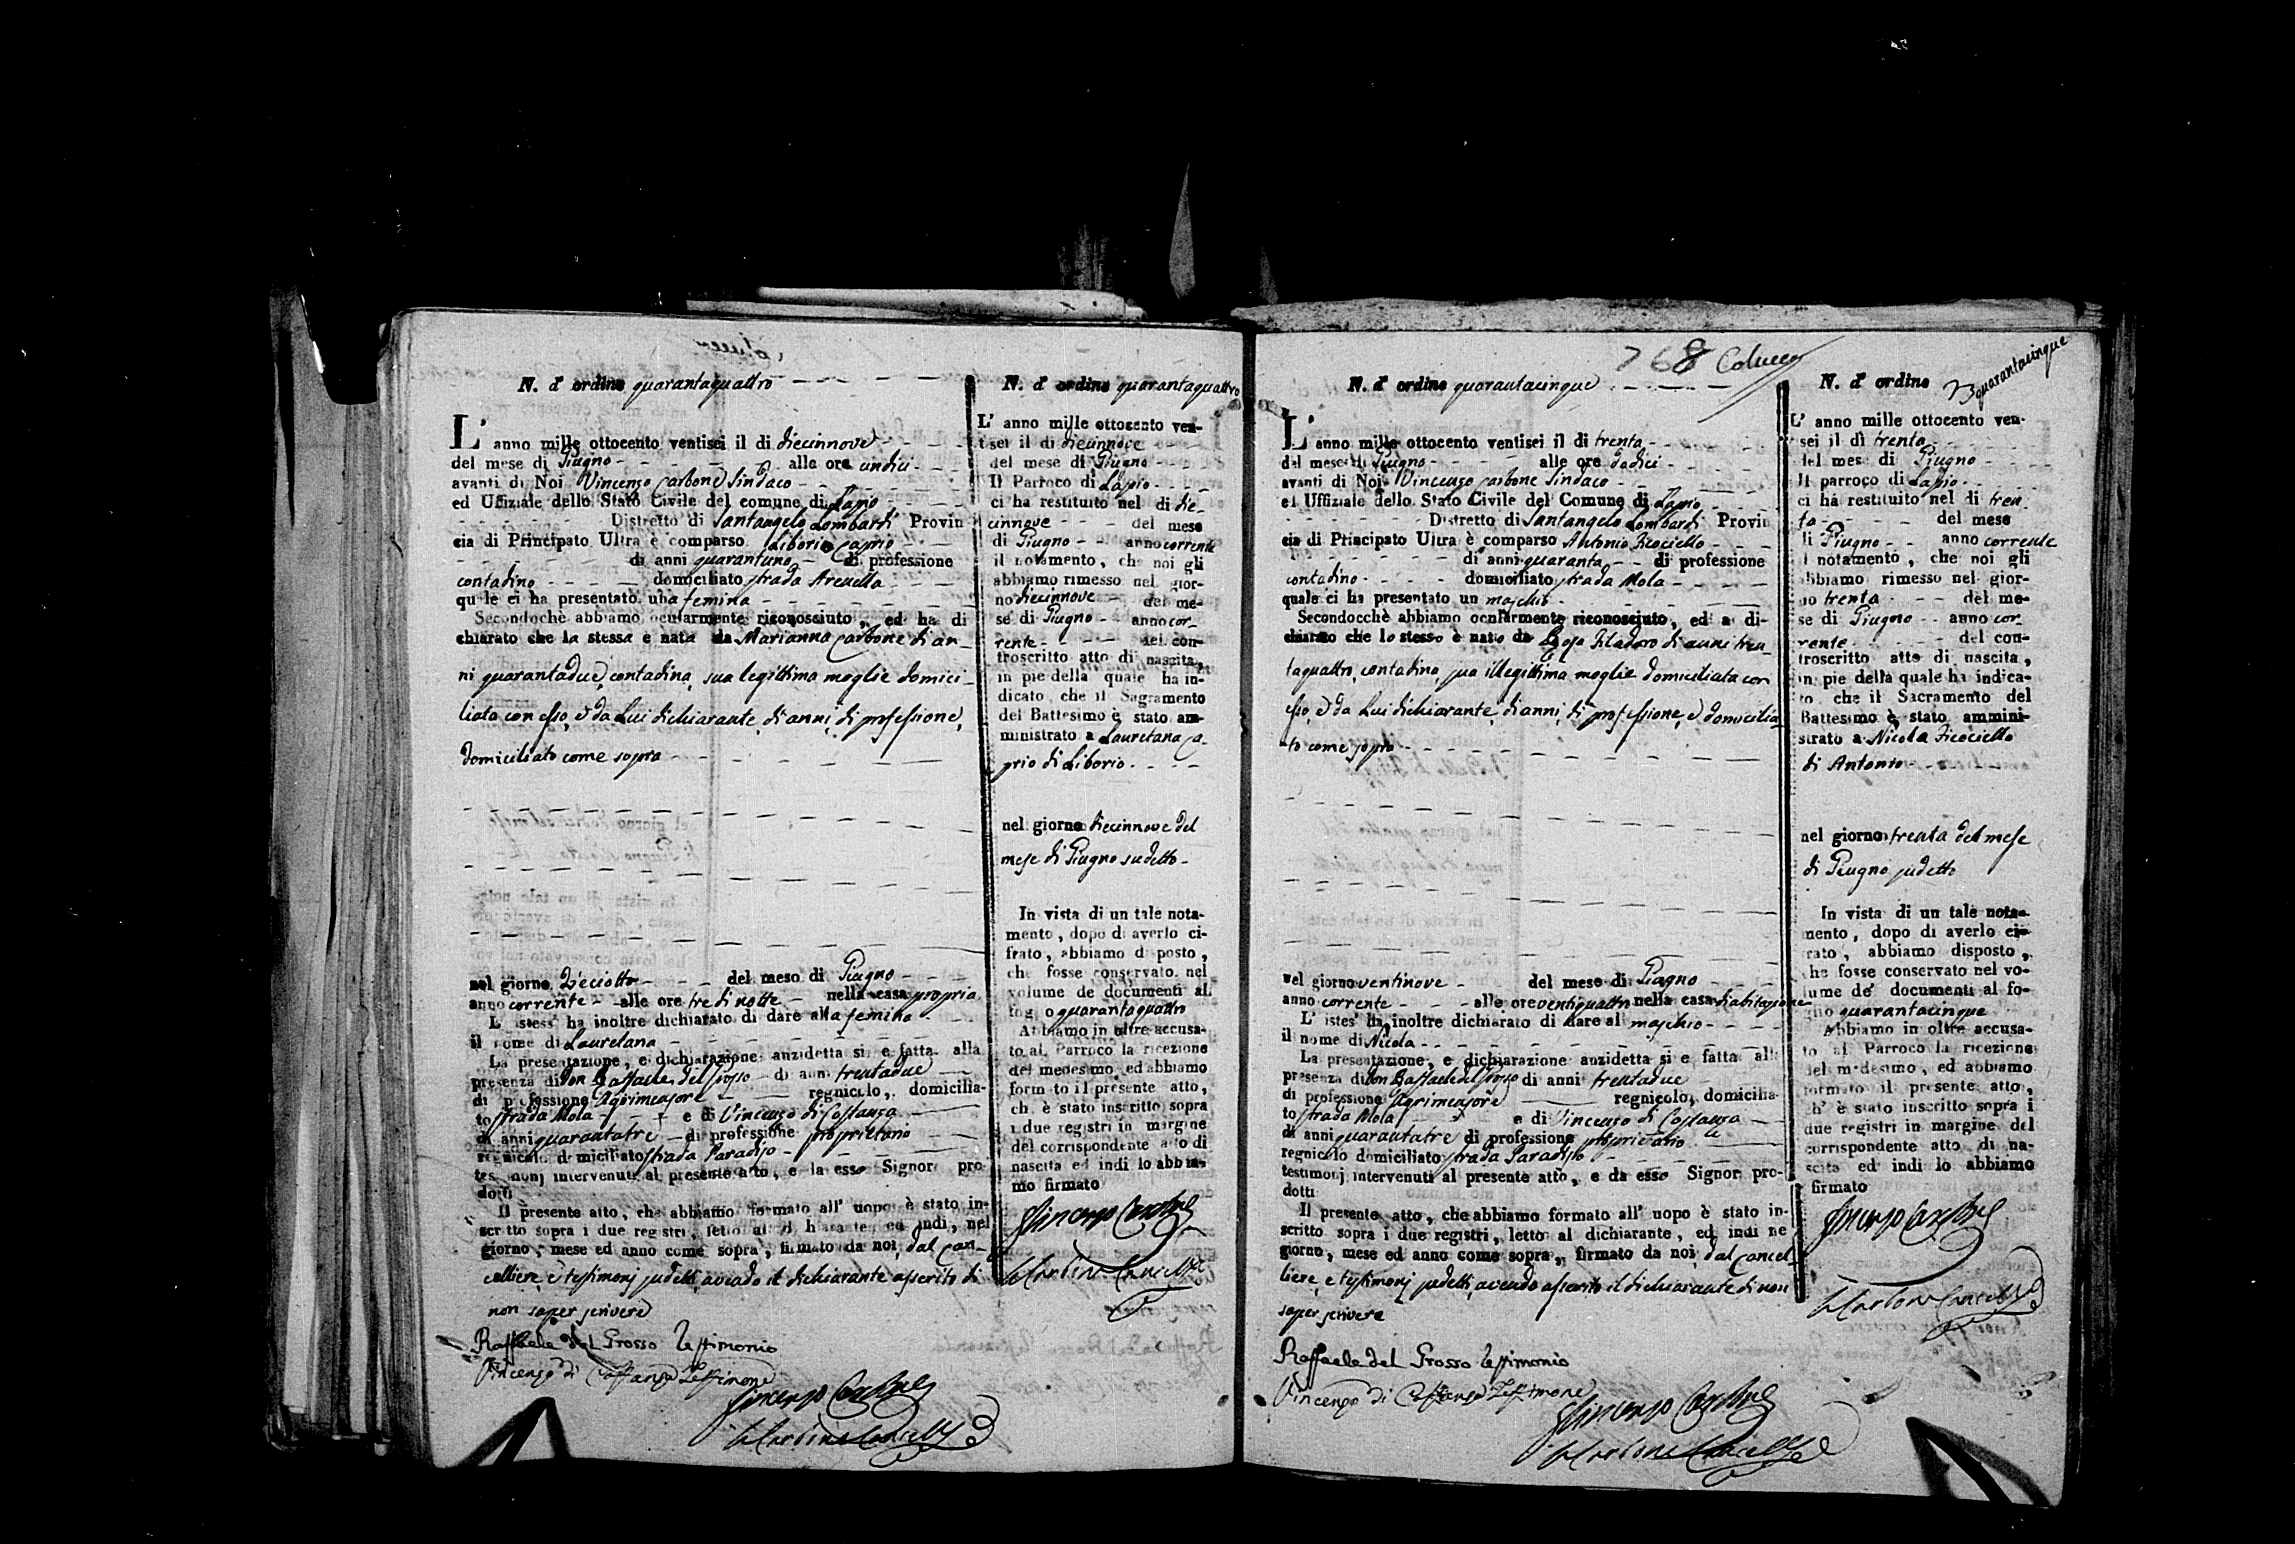 N. d' ordine quarantaquattro
L' anno mille ottocento ventisei il di diecinnove
del mese di Giugno alle ore undici
avanti di Noi Vincenzo Carbone Sindaco
ed Uffiziale dello Stato Civile del comune di Lapio
Distretto di Santangelo Lombardi Provin
cia di Principato Ultra è comparso Liborio Caprio
di anni quarantuno di professione
contadino domiciliato strada Arenella
quale ci ha presentato una femina
Secondochè abbiamo ocularmente riconosciuto, ed ha di
chiarato che la stessa è nata da Marianna Carbone di an-
ni quarantadue, contadina, sua legittima moglie domici-
liata con esso, e da Lui dichiarante, di anni, di professione,
domiciliato come sopra
nel giorno Dieciotto del mese di Giugno
anno corrente alle ore tre di notte nella casa propria
L' istess' ha inoltre dichiarato di dare alla femina
il nome di Lauretana
La presentazione, e dichiarazione anzidetta si e fatta alla
presenza di Don Raffaele del Grosso di anni trentadue
di professione Agrimensore regnicolo, domicilia-
to strada Mola e di Vincenzo di Costanza
di anni quarantatre di professione proprietario
regnicolo domiciliato strada Paradiso
testimonj intervenuti al presente atto, e da esso Signor pro-
dotti
Il presente atto, che abbiamo formato all' uopo è stato in-
scritto sopra i due registri, letto al dichiarante, ed indi, nel
giorno, mese ed anno come sopra, firmato da noi, dal Can-
celliere, e testimonj sudetti, avendo il dichiarante asserito di
non saper scrivere
Raffaele del Grosso Testimonio
Vincenzo di Costanza Testimone
Vincenzo Carbone
N. d' ordine quarantaquattro
L' anno mille ottocento ven-
tisei il di diecinnove
del mese di Giugno
Il Parroco di Lapio
ci ha restituito nel di die-
cinnove del mese
di Giugno anno corrente
il notamento, che noi gli
abbiamo rimesso nel gior-
no diecinnove del me-
se di Giugno anno cor-
rente del con-
troscritto atto di nascita,
in pie della quale ha in-
dicato che il Sagramento
del Battesimo è stato am-
ministrato a Lauretana Ca-
prio di Liborio
nel giorno diecinnove del
mese di Giugno sudetto
In vista di un tale nota-
mento, dopo di averlo ci-
frato, abbiamo disposto,
che fosse conservato nel
volume de documenti al
foglio quarantaquattro
Abbiamo in oltre accusa-
to al Parroco la ricezione
del medesimo, ed abbiamo
formato il presente atto,
ch' è stato inscritto sopra
i due registri in margine
del corrispondente atto di
nascita ed indi lo abbia-
mo firmato
Vincenzo Carbone
768 Colucci
N. d' ordine quarantacinque
L' anno mille ottocento ventisei il di trenta
del mese di Giugno alle ore dodici
avanti di Noi Vincenzo Carbone Sindaco
ed Uffiziale dello Stato Civile del Comune di Lapio
Distretto di Santangelo Lombardi Provin
cia di Principato Ultra è comparso Antonio Ficociello
di anni quaranta di professione
contadino domiciliato strada Mola
quale ci ha presentato un maschio
Secondocchè abbiamo ocularmente riconosciuto, ed a di-
chiarato che lo stesso è nato da Rosa Filadoro di anni tren-
taquattro, contadina, sua illegittima moglie domiciliata con
esso, e da Lui dichiarante, di anni, di professione, e domicilia-
to come sopra
nel giorno ventinove del mese di Giugno
anno corrente alle ore ventiquattro nella casa di abitazione
L' istes' ha inoltre dichiarato di dare al maschio
il nome di Nicola
La presentazione, e dichiarazione anzidetta si e fatta alla
presenza di Don Raffaele del Grosso di anni trentadue
di professione Agrimensore regnicolo, domicilia-
to strada Mola e di Vincenzo di Costanza
di anni quarantatre di professione proprietario
regnicolo domiciliato strada Paradiso
testimonj intervenuti al presente atto, e da esso Signor pro-
dotti
Il presente atto, che abbiamo formato all' uopo è stato in-
scritto sopra i due registri, letto al dichiarante, ed indi ne
giorno, mese ed anno come sopra, firmato da noi, dal Cancel-
liere, e testimonj sudetti, avendo asserito il dichiarante di non
saper scrivere
Raffaele del Grosso Testimonio
Vincenzo di Costanza Testimone
Vincenzo Carbone
N. d' ordine quarantacinque
L' anno mille ottocento ven-
sei il di trenta
del mese di Giugno
Il parroco di Lapio
ci ha restituito nel di tren
ta del mese
di Giugno anno corrente
il notamento, che noi gli
abbiamo rimesso nel gior-
no trenta del me-
se di Giugno anno cor-
rente del con-
troscritto atto di nascita,
in pie della quale ha indica-
to che il Sacramento del
Battesimo è stato ammini-
strato a Nicola Ficociello
di Antonio
nel giorno trenta del mese
di Giugno sudetto
In vista di un tale nota-
mento, dopo di averlo ci-
frato, abbiamo disposto,
che fosse conservato nel vo-
lume de' documenti al fo-
glio quarantacinque
Abbiamo in oltre accusa-
to al Parroco la ricezione
del medesimo, ed abbiamo
formato il presente atto,
ch' è stato inscritto sopra i
due registri in margine del
corrispondente atto di na-
scita ed indi lo abbiamo
firmato
Vincenzo Carbone